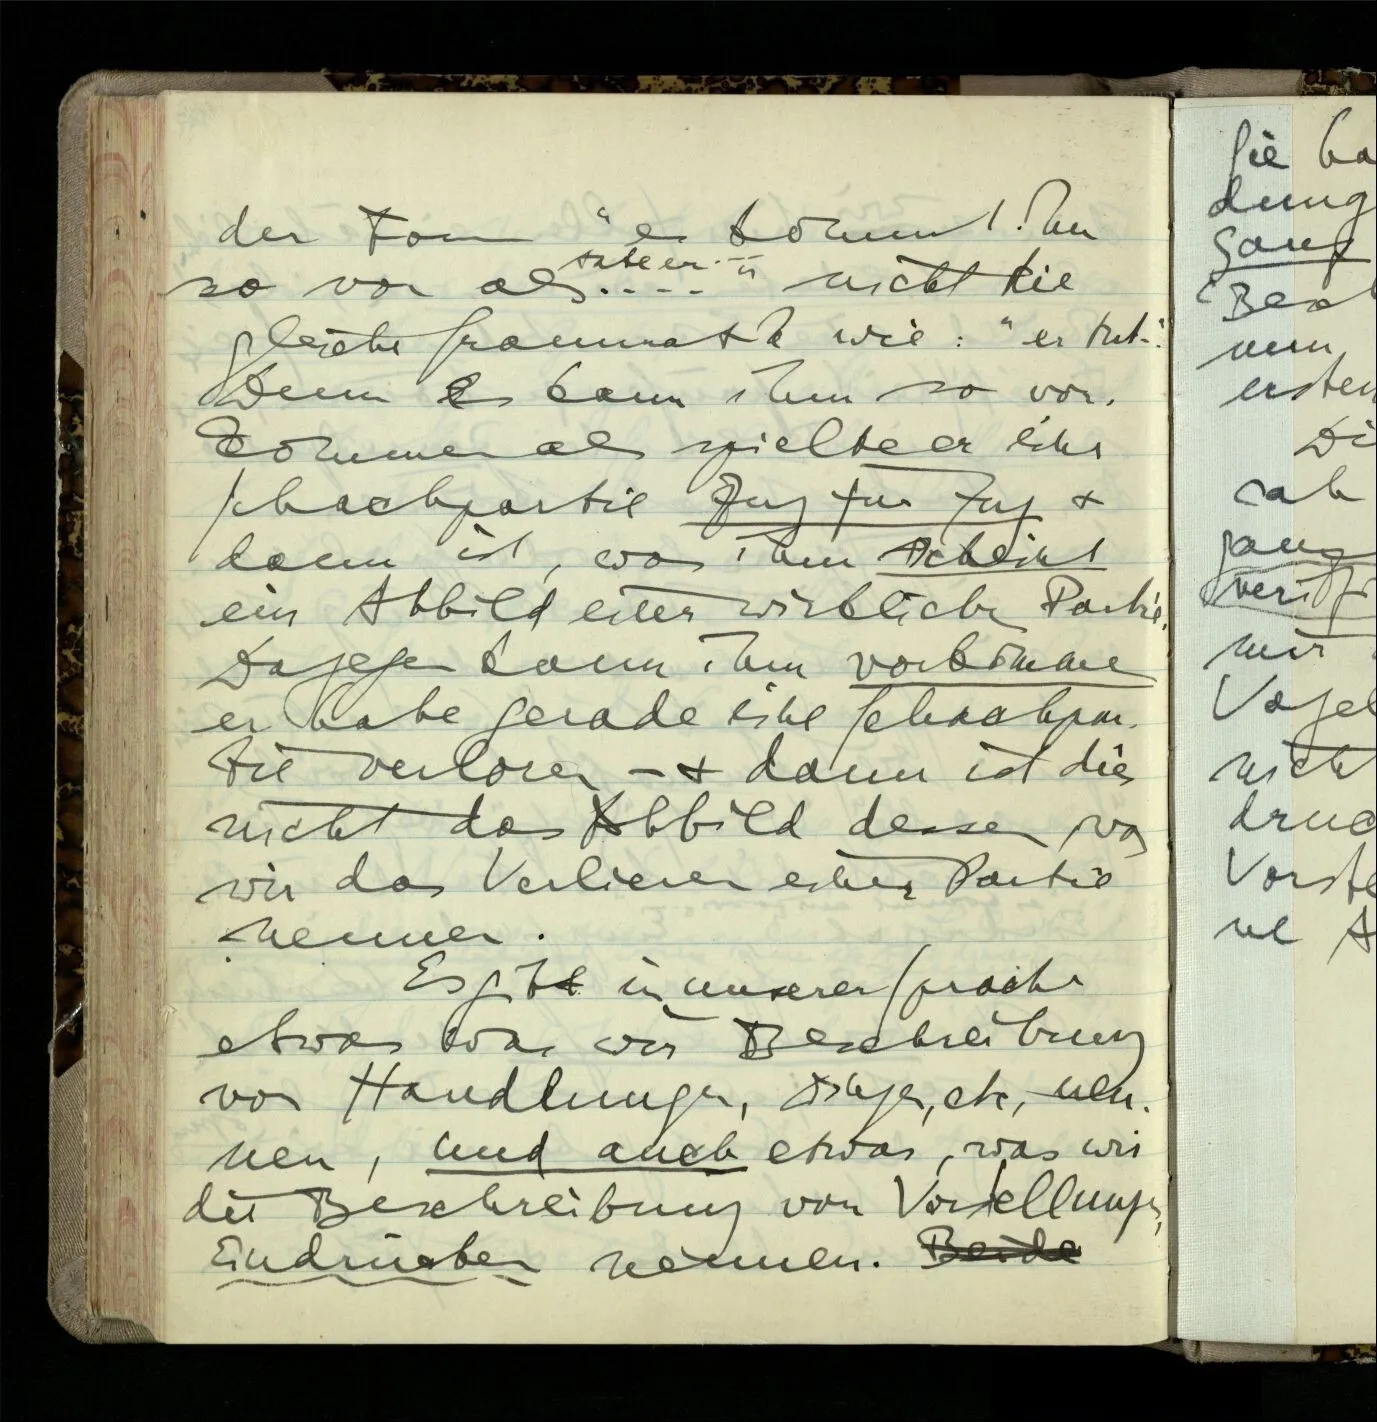 der Form "es kommt ihm
so vor als täte er .... " nicht die
gleiche Grammatik wie: "er tut..."
Denn es kann ihm so vor-
kommen als spielte er eine
Schachpartie Zug für Zug &
dann ist, was ihm scheint
ein Abbild einer wirklichen Partie.
Dagegen kann ihm vorkommen
er habe gerade eine Schachpar-
tie verloren – & dann ist dies
nicht das Abbild dessen was
wir das Verlieren einer Partie
nennen.
Es gibt in unserer Sprache
etwas was wir Beschreibung
von Handlungen, Dingen, etc, nen-
nen, und auch etwas, was wir
die Beschreibung von Vorstellungen,
Eindrücken nennen. Beide
Sie ha
dung
ganz
Besch
nun,
ersten
Di
sah
gang
verifi
mir
Vogel
nicht
druc
Vorste
ne A